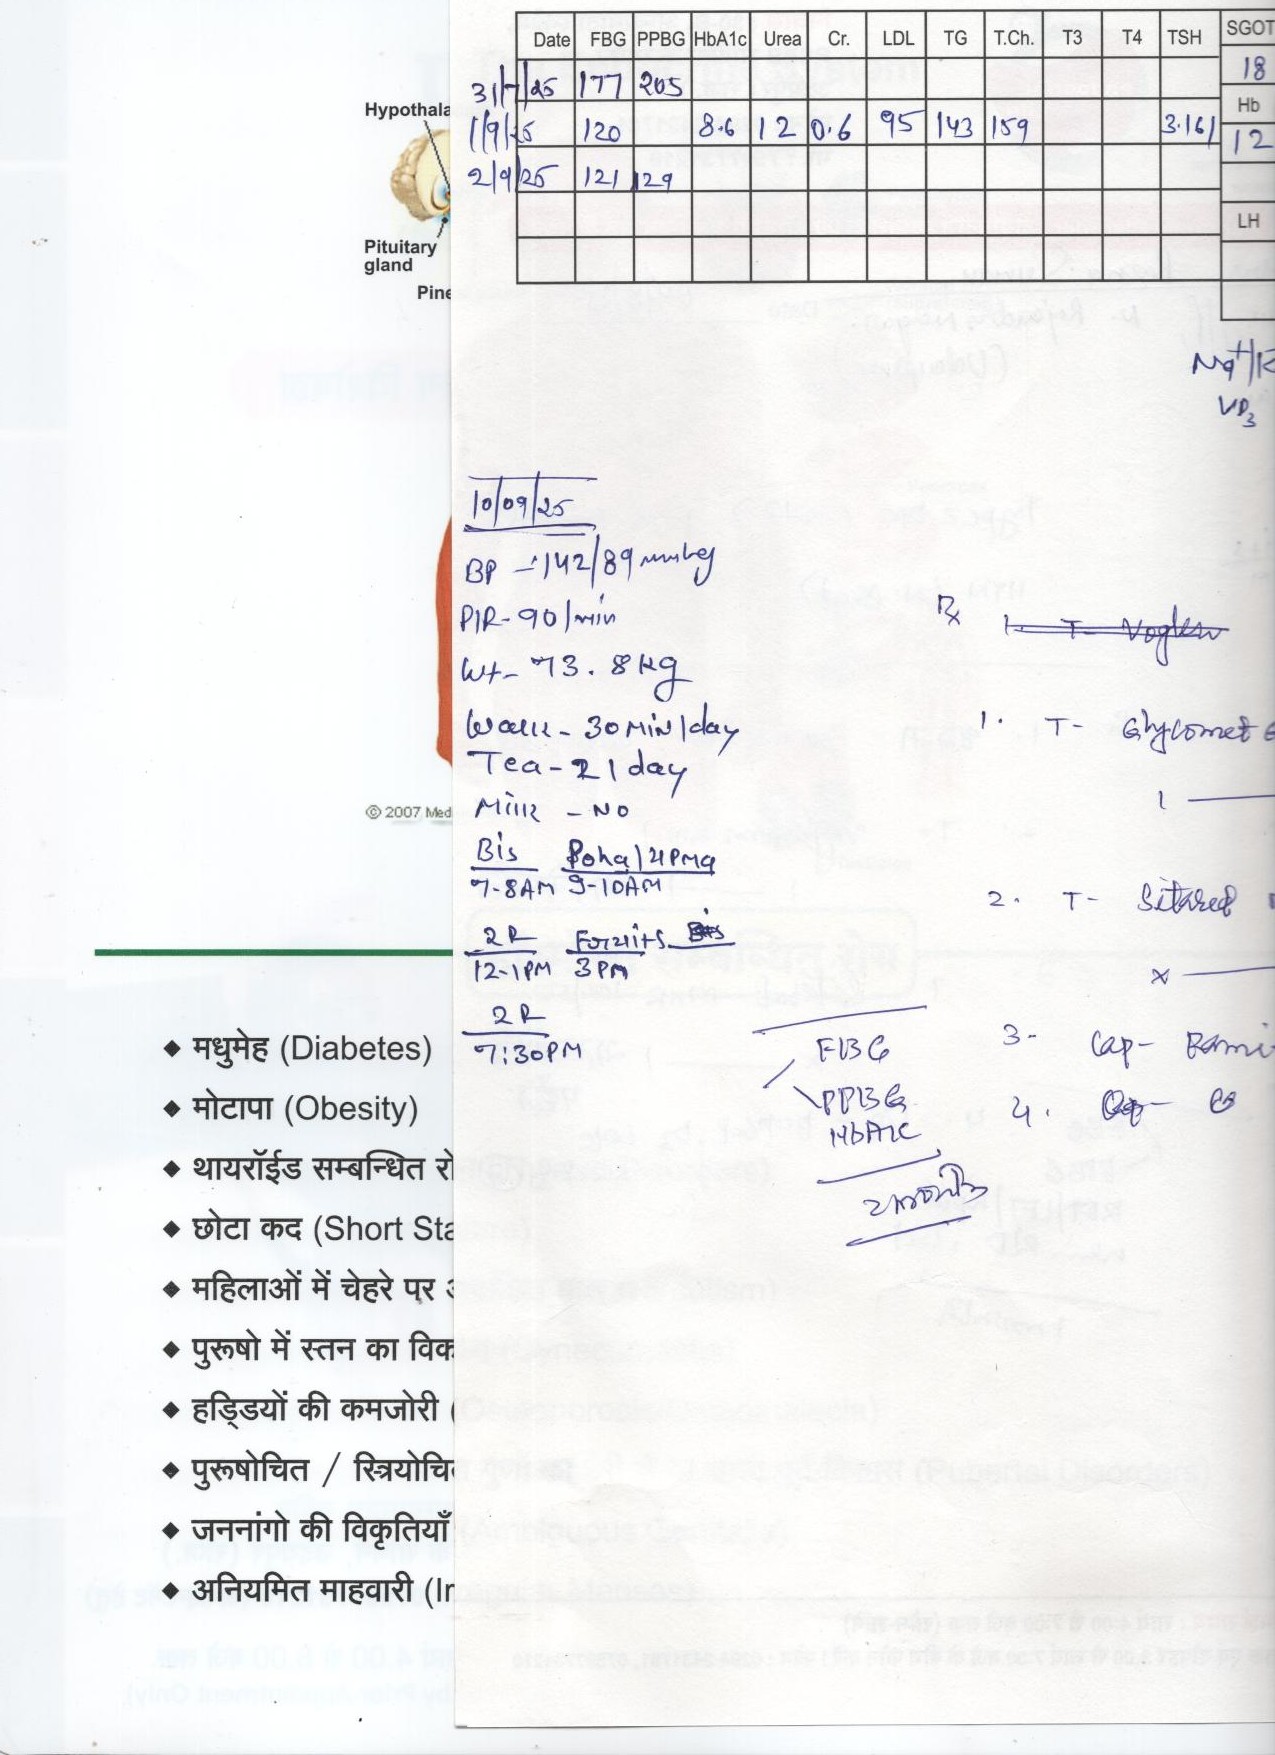 Date FBG PPBG HbA1c Urea Cr. LDL TG T.Ch. T3 T4 TSH SGOT
31/7/25 177 205 18
Hb
1/9/25 120 8.6 12 0.6 95 143 159 3.161 12
2/9/25 121 129
LH
Hypothala
Pituitary
gland
Pine
Na+/K
VD3
10/09/25
BP - 142/89 mmHg
P/R - 90/min
Rx
1. T- Voglis
Wt - 73.8 kg
Walk - 30 Min/day
1. T- Glycomet G
Tea - 2/day
1
Milk - No
© 2007 Med
Bis Poha/UPMa
7-8AM 9-10AM
2. T- Sitared
2R Fruits Bis
12-1PM 3PM
x
2R
7:30PM
FBG
PPBG
HbA1c
2 months
3- Cap- Rami
4. Cap
◆ मधुमेह (Diabetes)
◆ मोटापा (Obesity)
◆ थायरॉईड सम्बन्धित रो
◆ छोटा कद (Short Sta
◆ महिलाओं में चेहरे पर
◆ पुरूषो में स्तन का विक
◆ हड्डियों की कमजोरी
◆ पुरूषोचित / स्त्रियोचि
◆ जननांगो की विकृतियाँ
◆ अनियमित माहवारी (Ir